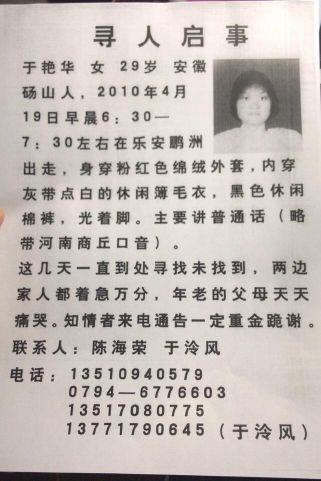 寻人启事
于艳华 女 29岁 安徽
砀山人，2010年4月
19日早晨6：30—
7：30左右在乐安鹏洲
出走，身穿粉红色绵绒外套，内穿
灰带点白的休闲簿毛衣，黑色休闲
棉裤，光着脚。主要讲普通话（略
带河南商丘口音）。
这几天一直到处寻找未找到，两边
家人都着急万分，年老的父母天天
痛哭。知情者来电通告一定重金跪谢。
联系人：陈海荣 于泠风
电话：13510940579
0794—6776603
13517080775
13771790645（于泠风）